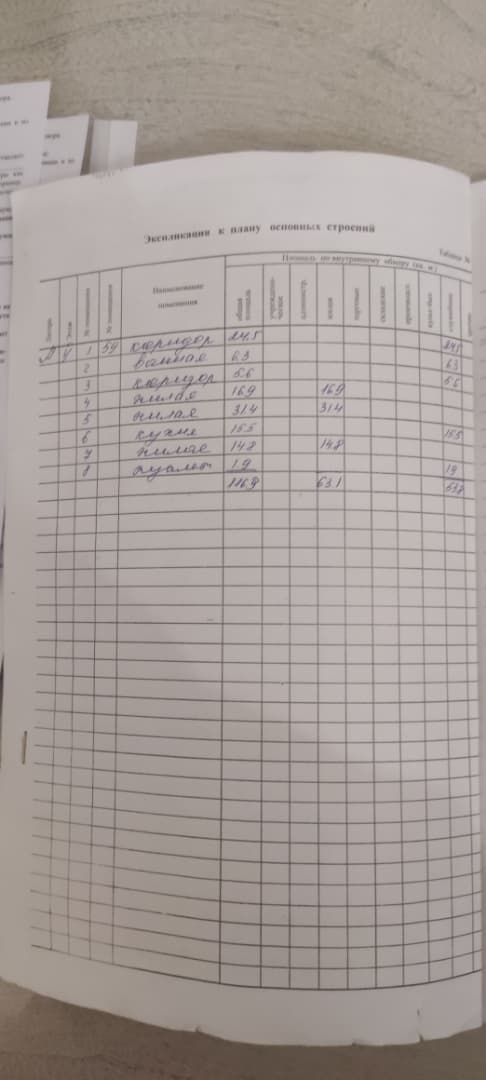 Экспликация к плану основных строений
Таблица №
Площадь по внутреннему обмеру (кв. м.)
Литера
Этаж
№ помещения
№ помещения
Наименование помещения
общая площадь
учрежденческая
админстр.
жилая
торговая
складские
служебная
А 4 1 59 коридор 24.5 24.5
2 ванная 6.3 6.3
3 коридор 5.6 5.6
4 жилая 16.9 16.9
5 жилая 31.4 31.4
6 кухня 15.5 15.5
7 жилая 14.8 14.8
8 туалет 1.9 1.9
116.9 63.1 53.8